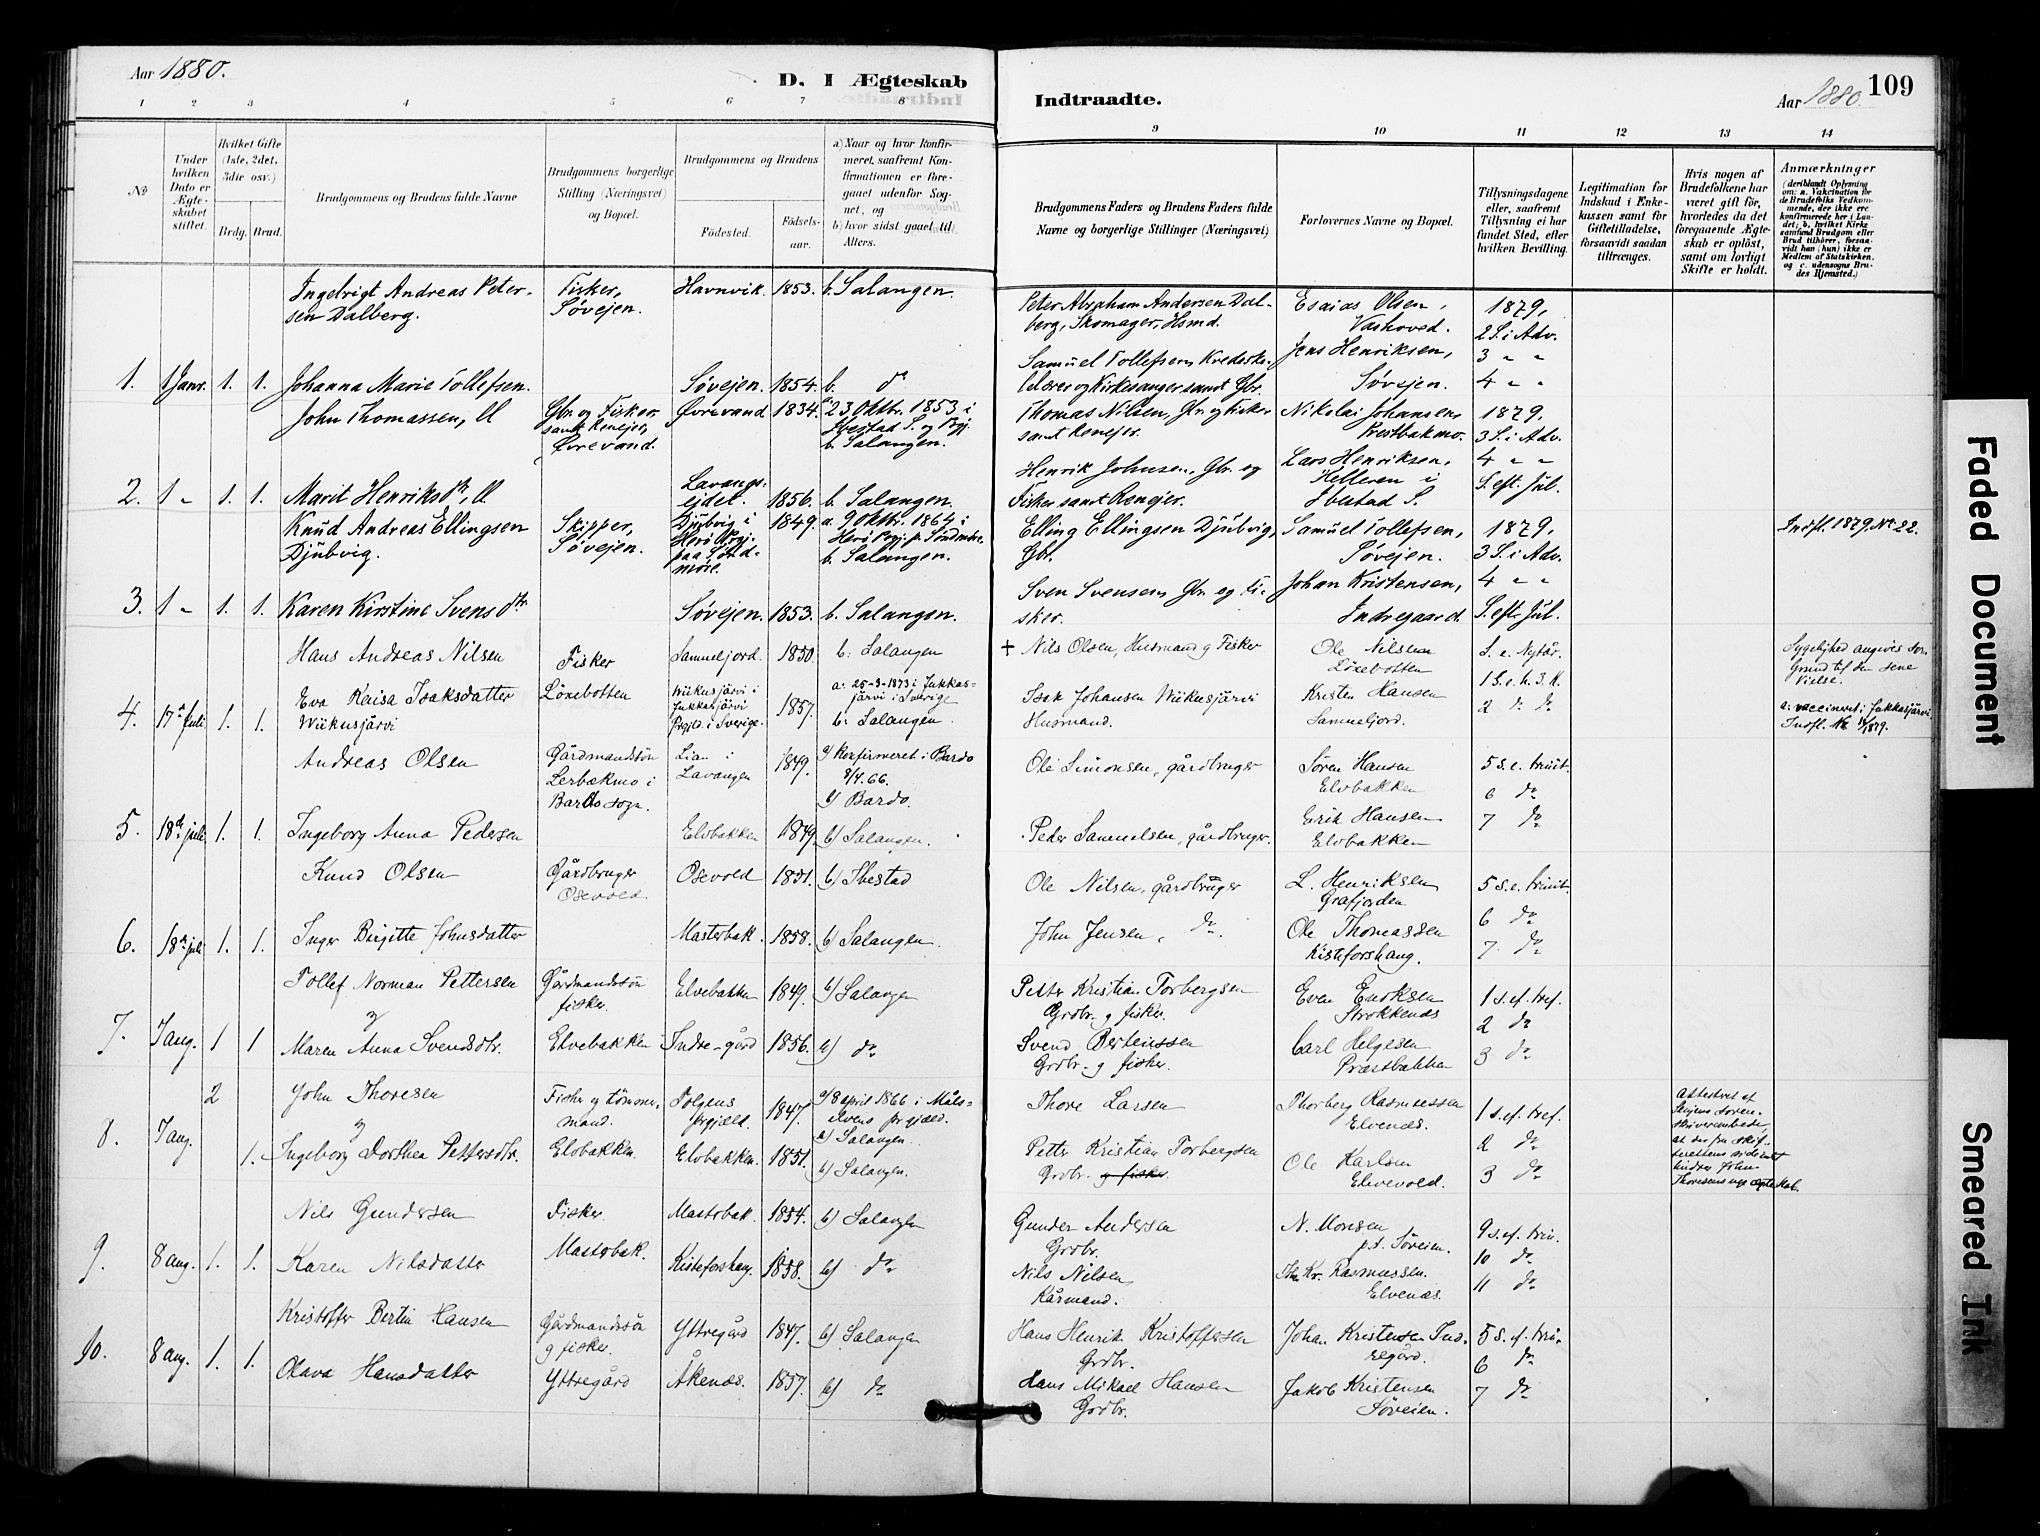 Aar 1880.
D. I Ægteskab
Indtraadte.
Aar 1880.
109
1 2 3 4 5 6 7 8 9 10 11 12 13 14
№
Under hvilken Dato er Ægteskabet stiftet.
Hvilket Gifte (1ste, 2det, 3die osv.)
Brdg. Brud.
Brudgommens og Brudens fulde Navne
Brudgommens borgerlige Stilling (Næringsvei) og Bopæl.
Brudgommens og Brudens
Fødested.
Fødselsaar.
a) Naar og hvor Konfirmeret, saafremt Konfirmationen er foregaaet udenfor Sognet, og
b) hvor sidst gaaet til Alters.
Brudgommens Faders og Brudens Faders fulde Navne og borgerlige Stillinger (Næringsvei)
Forlovernes Navne og Bopæl.
Tillysningsdagene eller, saafremt Tillysning ei har fundet Sted, efter hvilken Bevilling.
Legitimation for Indskud i Enkekassen samt for Giftetilladelse, forsaavidt saadan tiltrænges.
Hvis nogen af Brudefolkene har været gift før, hvorledes da det foregaaende Ægteskab er opløst, samt om lovligt Skifte er holdt.
Anmærkninger
(deriblandt Oplysning om: a. Vakcination for de Brudefolks Vedkommende, der ikke ere konfirmerede her i Landet; b. hvilket Kirkesamfund Brudgom eller Brud tilhører, forsaavidt han (hun) ikke er Medlem af Statskirken, og c. udensogns Brudes Hjemsted.)
Ingebrigt Andreas Petersen Dalberg. Fisker, Søvejen. Havnvik. 1853. b. Salangen. Peter Abraham Andersen Dalberg, Skomager, Hsmd. Esaias Olsen, Vashoved. 1879, 2 S. i Adv.
1. 1 Janr. 1. 1. Johanna Marie Tollefsen. Søvejen. 1854. b. do Samuel Tollefsen og Kirkesanger samt Gbr. Jens Henriksen, Søvejen. 3 " " 4 " "
John Thomassen, Gbr. og Fisker samt Renejer, Øvrevand. Øvrevand. 1834. a. 23 Oktbr. 1853 i Ibestad S. og Pgj. b. Salangen. Thomas Nilsen, Gbr. og Fisker samt Renejer. Nikolai Johansen, Prestbakmo. 1879, 3 S. i Adv.
2. 1 " 1. 1. Marit Henriksdtr, Lavangsejdet. 1856. b. Salangen. Henrik Johnsen, Gbr. og Fisker samt Renejer. Lars Henriksen, Kelleren i Ibestad S. 4 " " S. eft. Jul.
Knud Andreas Ellingsen Djubvig. Skipper, Søvejen. Djubvig i Herø Pgj. paa Søndmøre. 1849. a. 9 Oktbr. 1864 i Herø Pgj. p. Søndmøre. b. Salangen. Elling Ellingsen Djubvig, Gbr. Samuel Tollefsen, Søvejen. 1879, 3 S. i Adv. Indfl. 1879. No. 22.
3. 1 " 1. 1. Karen Kirstine Svensdtr. Søvejen. 1853. b. Salangen. Sven Svensen Gbr. og Fisker. Johan Kristensen, Indregaard. 4 " " S. eft. Jul.
Hans Andreas Nilsen Fisker Løxebotten Sammeljord. 1850. b: Salangen + Nils Olsen, Husmand og Fisker Ole Nilsen Løxebotten S. e. Nytår. Sygelighed angives som Grund til den sene Vielse.
4. 17de Juli 1. 1. Eva Kaisa Isaksdatter Wiikusjärvi Wiikusjärvi i Jukkasjärvi Pgjld. i Sverige. 1857. a: 25-3-1873 i Jukkasjärvi i Sverige b: Salangen. Isak Johansen Wiikusjärvi Husmand. Kristen Hansen Sammeljord. 1 S. e. h. 3. K. 2 do do a: vaccineret i Jukkasjärvi. Indfl.
Andreas Olsen Gårdmandssøn Lerbækmo i Bardo sogn. Lian i Lavangen 1849. a) Konfirmeret i Bardo 8/4.66. b) Bardo. Ole Simonsen, gårdbruger Søren Hansen Elvbakken 5 s. e. trinit. 6 do
5. 18de juli 1. 1. Ingeborg Anna Pedersen Elvbakken 1849. b) Salangen. Peder Samuelsen, gårdbruger. Erik Hansen Elvbakken 7 do
Knud Olsen Gårdbruger Osevold. Osevold 1851. b) Ibestad Ole Nilsen, gårdbruger L. Henriksen Grafjorden 5 s. e. trinit. 6 do
6. 18de juli 1. 1. Inger Birgitte Johnsdatter Masterbak. 1858. b) Salangen. John Jensen, do. Ole Thomassen Kisteforshaug. 7. do
Tollef Norman Pettersen Gårdmandssøn fisker. Elvebakken 1849. b) Salangen Petter Kristian Torbergsen Grdbr. og fisker. Even Enoksen Strokkenæs 1 s. ef. tref. 2 do
7. 7 aug. 1 1 og Maren Anna Svendsdtr. Elvebakken Indre-gård 1856. b) do Svend Berteussen Grdbr. og fisker. Carl Helgesen Præstbakken 3 do
2 John Thoresen Fisker og tømmermand. Elvbakken. 1847. a) 8 april 1866 i Målselvens prgjæld. b) Salangen. Thore Larsen Thorberg Rasmussen Elvenæs. 1 s. ef. tref. 2 do
8. 7 aug. 1. og Ingeborg Dorthea Pettersdtr. Elvbakken. 1851. b) Salangen. Petter Kristian Torbergsen Grdbr. og fisker. Ole Karlsen Elvevold. 3 do
Nils Gundersen Fisker. Mastobak. Mastobak. 1854. b) Salangen Gunder Andersen Grdbr. N. Monsen p.t. Søveien. 9 s. ef. trin. 10 do
9. 8 aug. 1. 1. Karen Nilsdatter Kisteforshaug. 1858. b) do Nils Nilsen Kårmand. Th. Kr. Rasmussen. Elvenæs. 11 do
Kristoffer Bertin Hansen Gårdmandssøn og fisker. Yttregård Yttregård 1847. b) Salangen Hans Henrik Kristoffersen Grdbr. Johan Kristensen Indregård. 5 s. ef. trin. 6 do
10. 8 aug. 1. 1. Olava Hansdatter Åkenæs. 1857. b) do Hans Mikael Hansen Grdbr. Jakob Kristensen Søveien. 7 do
Faded Document
Smeared Ink